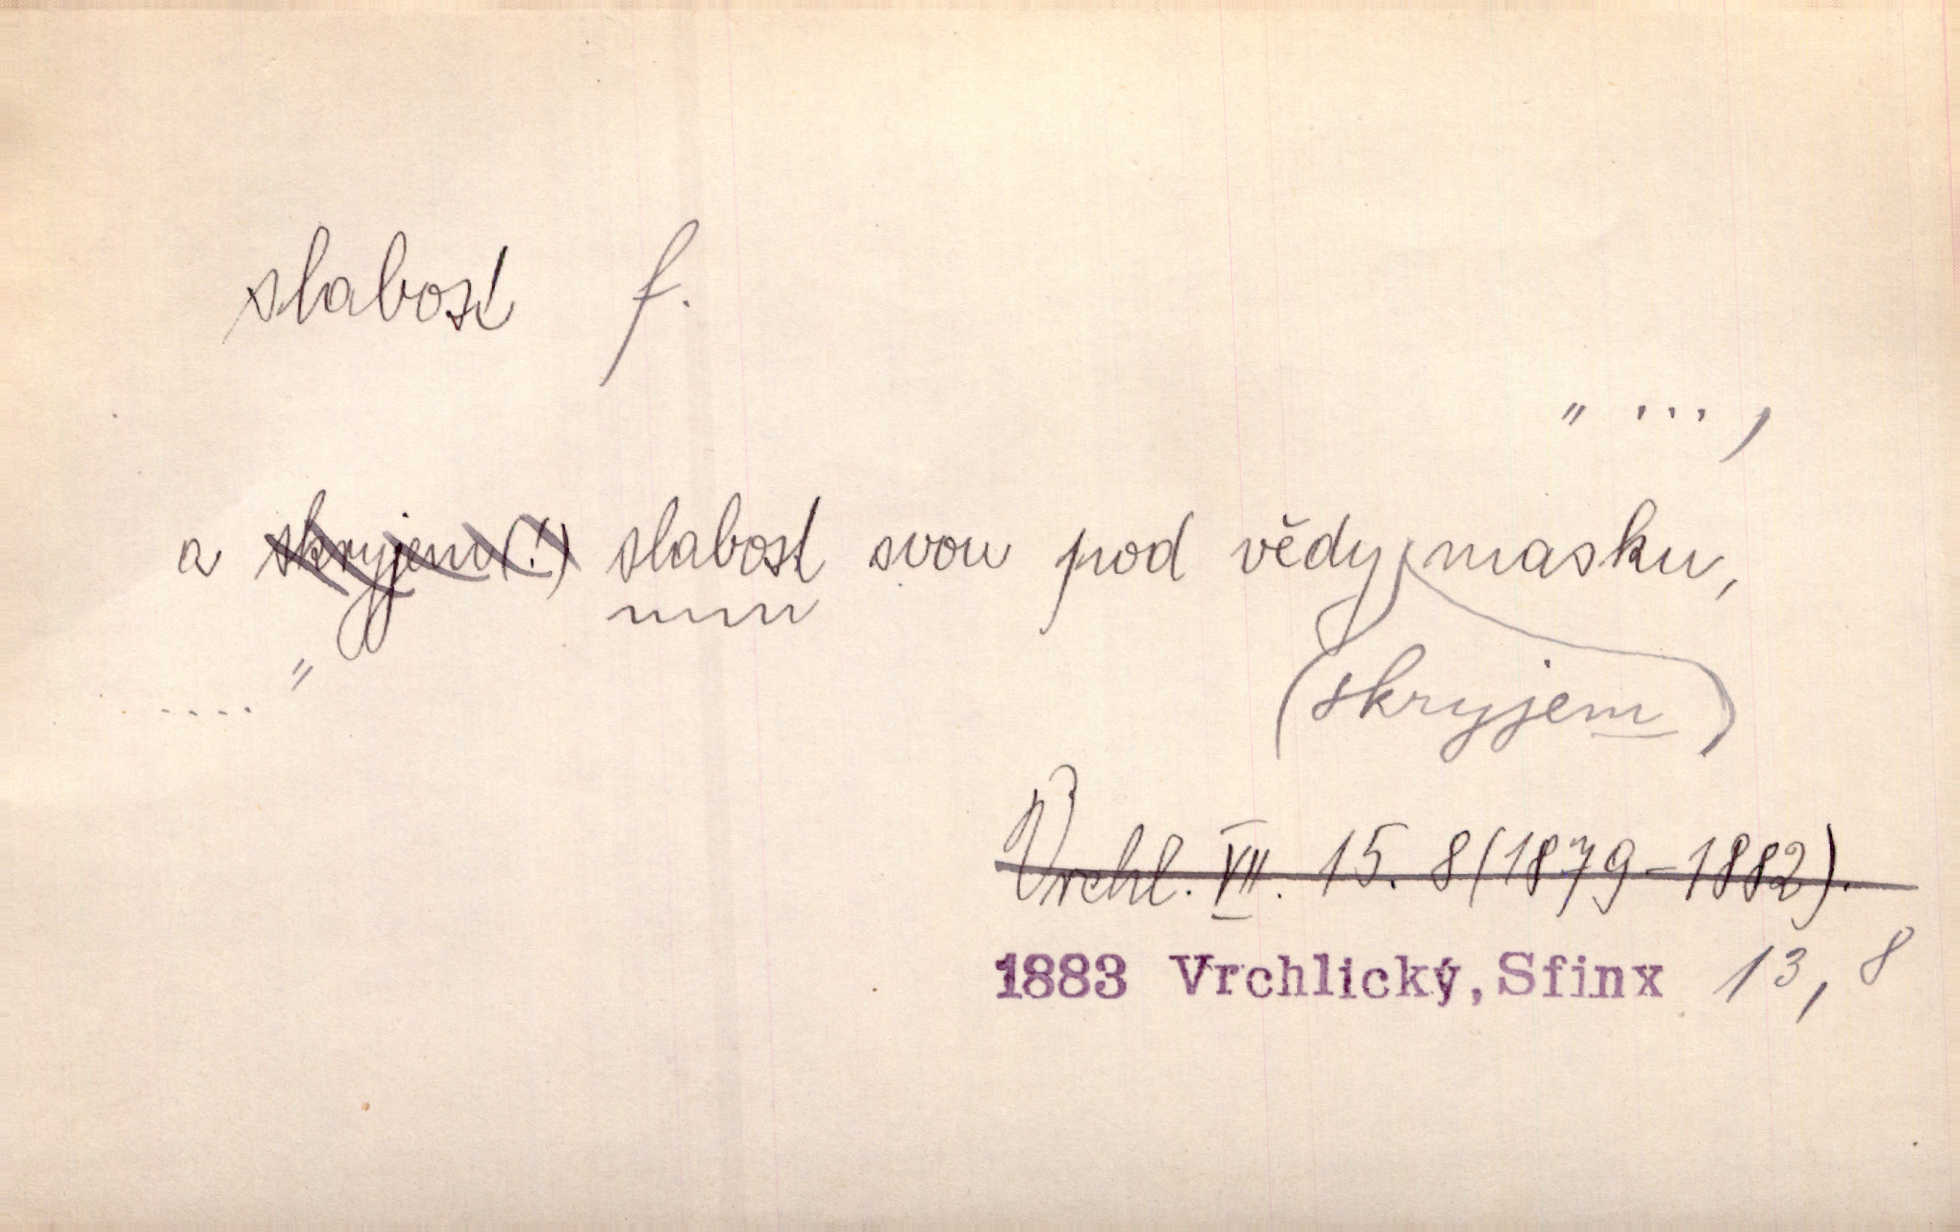 slabost f.
„ ...,
a skryjem(!) slabost svou pod vědy masku,
.... "
(skryjem)
Vrchl. VII. 15. 8 (1879-1882).
1883 Vrchlický, Sfinx 13, 8